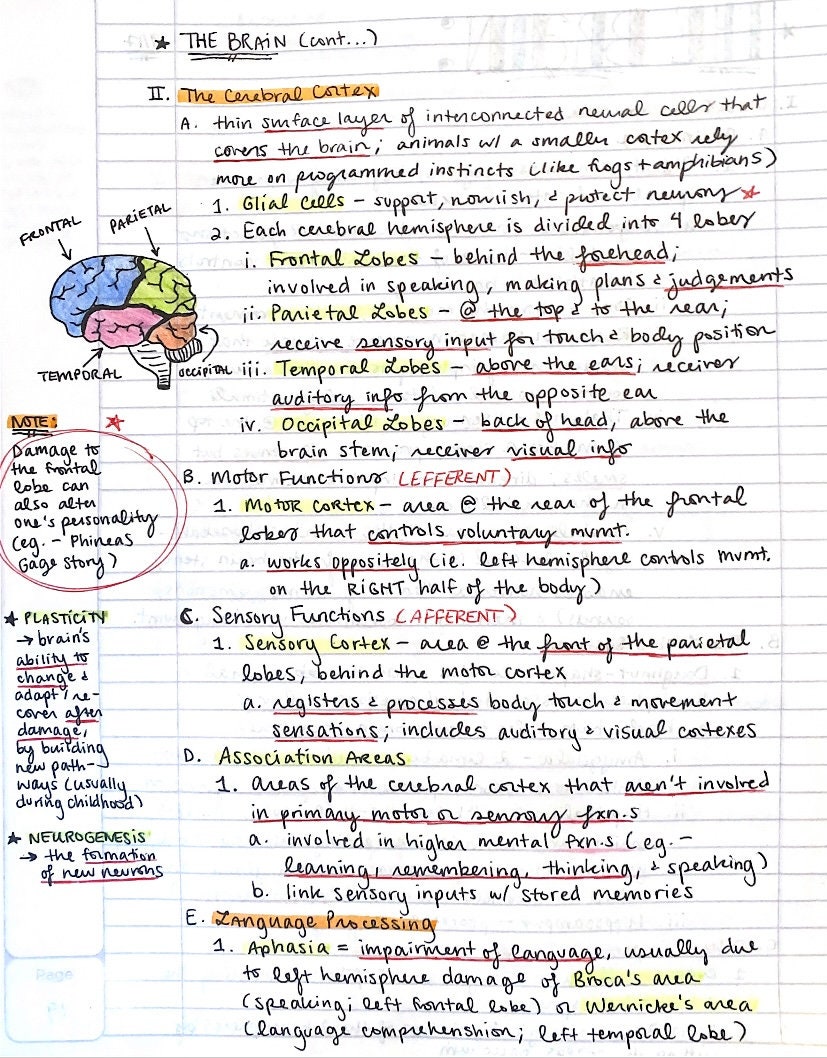 ★ THE BRAIN (cont...)
II. The Cerebral Cortex
A. thin surface layer of interconnected neural cells that
covers the brain; animals w/ a smaller cortex rely
more on programmed instincts (like frogs + amphibians)
1. Glial Cells – support, nourish, & protect neurons ★
2. Each cerebral hemisphere is divided into 4 lobes
i. Frontal Lobes – behind the forehead;
involved in speaking, making plans & judgements
ii. Parietal Lobes – @ the top & to the rear;
receive sensory input for touch & body position
iii. Temporal Lobes – above the ears; receives
auditory info from the opposite ear
iv. Occipital Lobes – back of head, above the
brain stem; receives visual info
FRONTAL
PARIETAL
TEMPORAL
OCCIPITAL
NOTE: ★
Damage to
the frontal
lobe can
also alter
one's personality
(eg. – Phineas
Gage story)
B. Motor Functions (EFFERENT)
1. Motor Cortex – area @ the rear of the frontal
lobes that controls voluntary mvmt.
a. works oppositely (ie. left hemisphere controls mvmt.
on the RIGHT half of the body)
★ PLASTICITY
→ brain's
ability to
change &
adapt/re-
cover after
damage,
by building
new path-
ways (usually
during childhood)
★ NEUROGENESIS
→ the formation
of new neurons
C. Sensory Functions (AFFERENT)
1. Sensory Cortex – area @ the front of the parietal
lobes, behind the motor cortex
a. registers & processes body touch & movement
sensations; includes auditory & visual cortexes
D. Association Areas
1. areas of the cerebral cortex that aren't involved
in primary motor or sensory fxn.s
a. involved in higher mental fxn.s (eg. –
learning, remembering, thinking, & speaking)
b. link sensory inputs w/ stored memories
E. Language Processing
1. Aphasia = impairment of language, usually due
to left hemisphere damage of Broca's area
(speaking; left frontal lobe) or Wernicke's area
(language comprehenshion; left temporal lobe)
Page